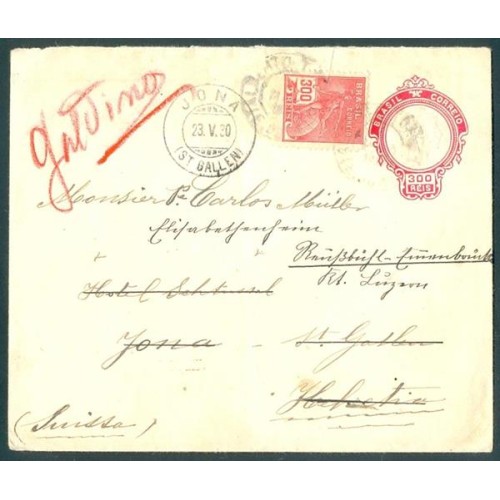 JONA
23.V.30
(ST GALLEN)
BRASIL
CORREIO
300
REIS
BRASIL CORREIO
300
REIS
Monsier Pe Carlos Müller
Elisabethenheim
Reußbühl-Emmenbrücke
Kt. Luzern
Hotel Schlüssel
Jona
St Gallen
(Suissa)
Helvetia